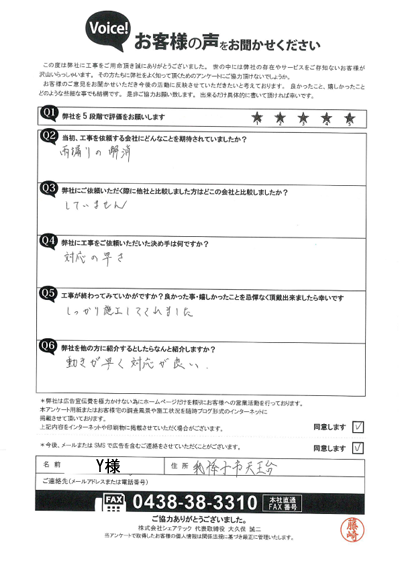 Voice! お客様の声をお聞かせください
この度は弊社に工事をご用命頂き誠にありがとうございました。世の中には弊社の存在やサービスをご存知ないお客様が
沢山いらっしゃいます。その方たちに弊社をよく知って頂くためのアンケートにご協力頂けないでしょうか。
お客様のご意見をお聞かせいただき今後の活動に反映させていただきたいと考えております。良かったこと、嬉しかったこと
どのような些細な事でも結構です。是非ご協力お願い致します。出来るだけ具体的に書いて頂ければ幸いです。
Q1 弊社を5段階で評価をお願いします
Q2 当初、工事を依頼する会社にどんなことを期待されていましたか?
雨漏りの解消
Q3 弊社にご依頼いただく際に他社と比較しました方はどこの会社と比較しましたか?
していません
Q4 弊社に工事をご依頼いただいた決め手は何ですか?
対応の早さ
Q5 工事が終わってみていかがですか?良かった事・嬉しかったことを忌憚なく頂戴出来ましたら幸いです
しっかり施工してくれました
Q6 弊社を他の方に紹介するとしたらなんと紹介しますか?
動きが早く対応が良い。
*弊社は広告宣伝費を極力かけない為にホームページだけを頼りにお客様への営業活動を行っております。
本アンケート用紙またはお客様宅の調査風景や施工状況を随時ブログ形式のインターネットに
掲載させて頂いております。
上記内容をインターネットや印刷物に掲載させていただく場合がございます。 同意します ✓
*今後、メールまたはSMSで広告を含むご連絡をさせていただくことがございます。 同意します ✓
名前 Y様 住所 我孫子市天王台
ご連絡先(メールアドレスまたは電話番号)
FAX 0438-38-3310 本社直通 FAX番号
ご協力ありがとうございました。
株式会社シェアテック 代表取締役 大久保 誠二
当アンケートで取得したお客様の個人情報は関係法規に基づき厳正に管理いたします。
藤崎